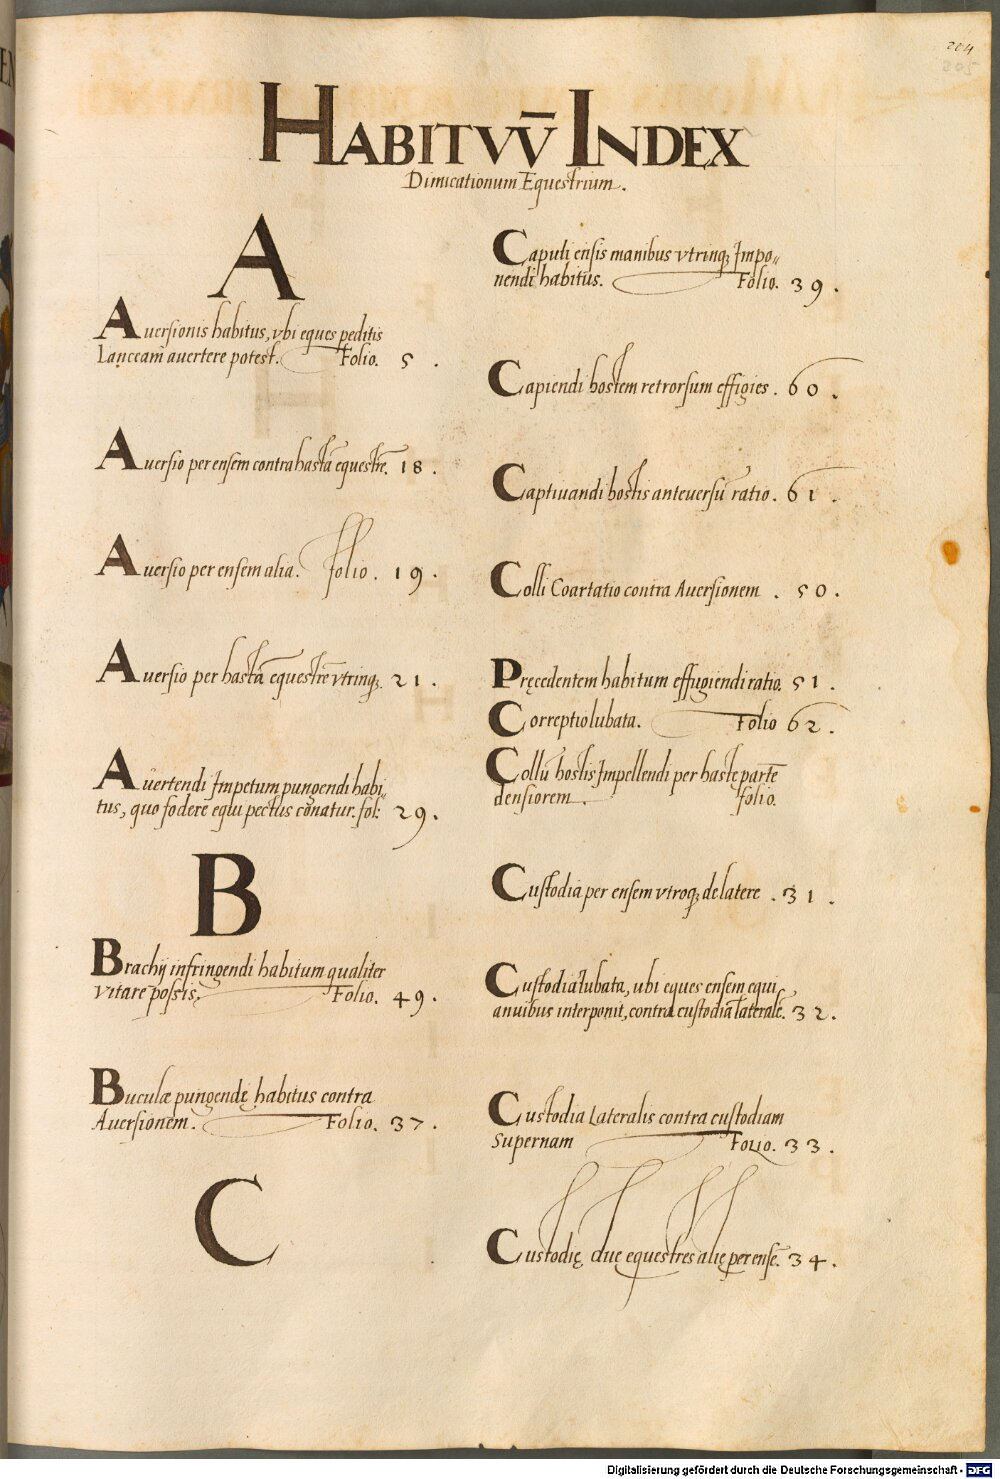 204
305
HABITVV̄ INDEX
Dimicationum Equestrium.
A
Auersionis habitus, vbi eques peditis
Lanceam auertere potest. Folio. 5.
Auersio per ensem contra hastā equestrē. 18.
Auersio per ensem alia. folio. 19.
Auersio per hastā equestrē vtrinq;. 21.
Auertendi Impetum pungendi habi„
tus, quo fodere equi pectus conatur. fol: 29.
B
Brachij infringendi habitum qualiter
vitare possis. Folio. 49.
Buculæ pungendę habitus contra
Auersionem. Folio. 37.
C
Capuli ensis manibus vtrinq; Impo„
nendi habitus. Folio. 39.
Capiendi hostem retrorsum effigies. 60.
Captiuandi hostis anteuersū ratio. 61.
Colli Coartatio contra Auersionem. 50.
Pręcedentem habitum effugiendi ratio. 51.
Correptio lubata. Folio 62.
Collū hostis Impellendi per hastę partē
densiorem. folio.
Custodia per ensem vtroq; de latere. 31.
Custodia lubata, ubi eques ensem equi
anuibus interponit, contra custodiā lateralē. 32.
Custodia Lateralis contra custodiam
Supernam Folio. 33.
Custodię, duę equestres alię per ensē. 34.
Digitalisierung gefördert durch die Deutsche Forschungsgemeinschaft - DFG